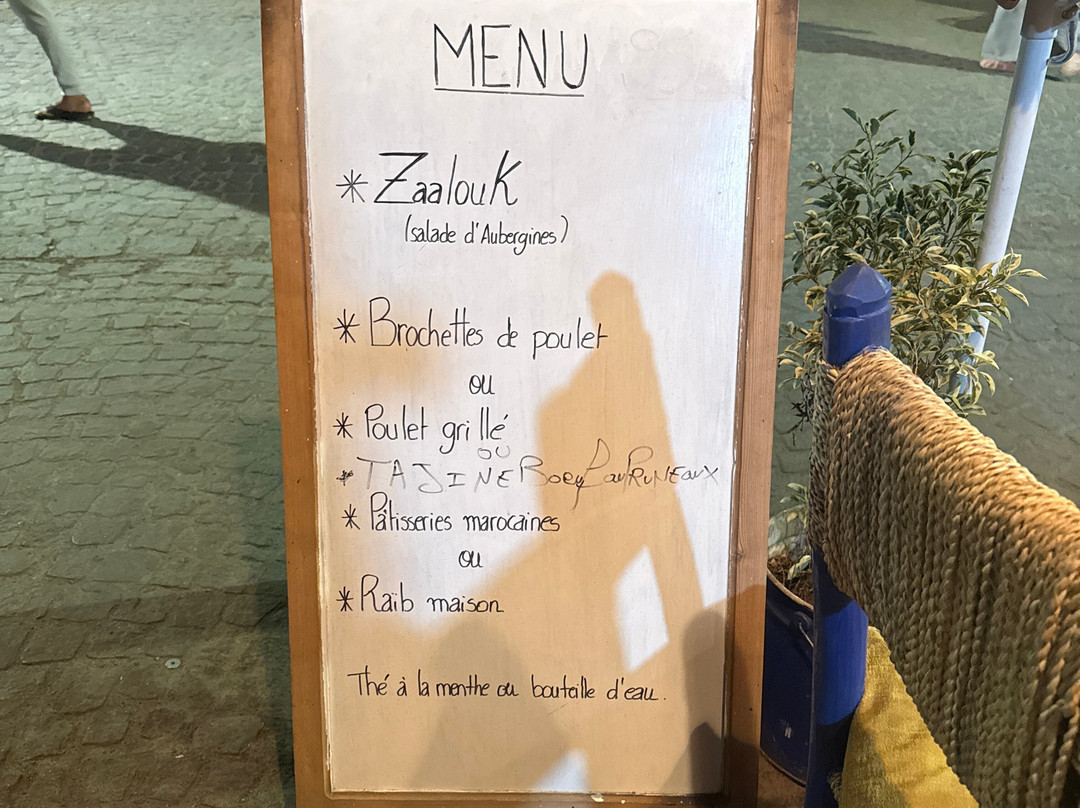 MENU
* Zaalouk
(salade d'Aubergines)
* Brochettes de poulet
ou
* Poulet grillé
ou
* TAJINE Boeuf au PRUNEaux
* Pâtisseries marocaines
ou
* Raïb maison
Thé à la menthe ou bouteille d'eau.